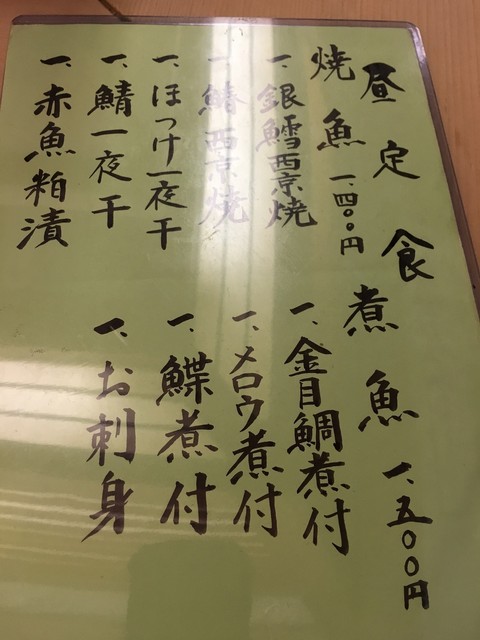 昼定食
焼魚 一、四〇〇円
一、銀鱈西京焼
一、鰆西京焼
一、ほっけ一夜干
一、鯖一夜干
一、赤魚粕漬
煮魚 一、五〇〇円
一、金目鯛煮付
一、メロウ煮付
一、鰈煮付
一、お刺身